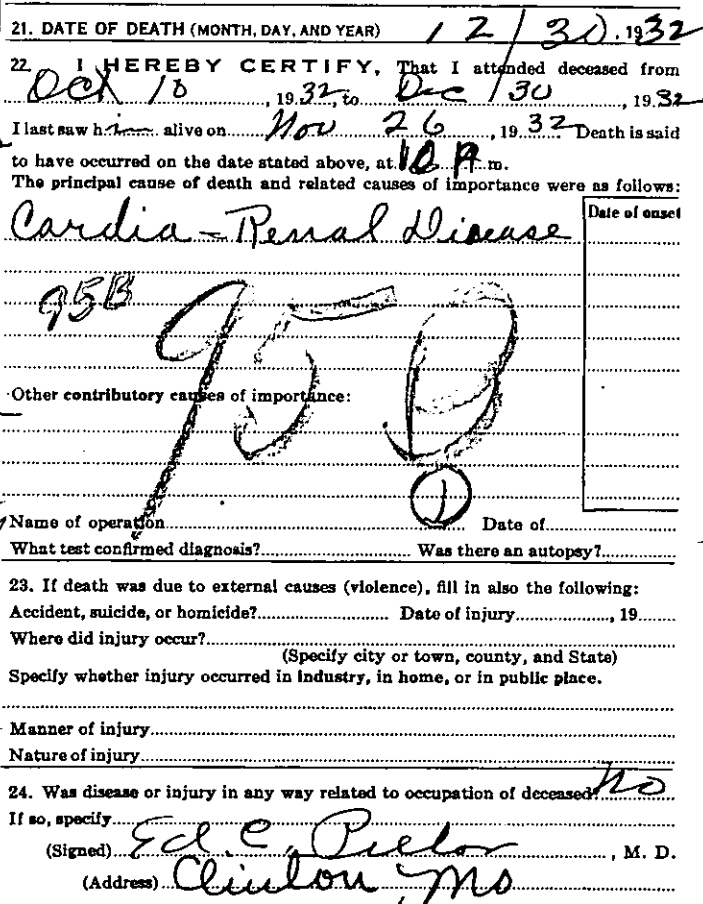 21. DATE OF DEATH (MONTH, DAY, AND YEAR) 12/30, 1932
22. I HEREBY CERTIFY, That I attended deceased from
Oct 18, 1932, to Dec 30, 1932
I last saw him alive on Nov 26, 1932 Death is said
to have occurred on the date stated above, at 10 P m.
The principal cause of death and related causes of importance were as follows:
Date of onset
Cardia - Renal Disease
95B
95B
Other contributory causes of importance:
1
Name of operation Date of
What test confirmed diagnosis? Was there an autopsy?
23. If death was due to external causes (violence), fill in also the following:
Accident, suicide, or homicide? Date of injury, 19
Where did injury occur?
(Specify city or town, county, and State)
Specify whether injury occurred in industry, in home, or in public place.
Manner of injury
Nature of injury
24. Was disease or injury in any way related to occupation of deceased? No
If so, specify
(Signed) Ed. C. , M. D.
(Address) Clinton, Mo